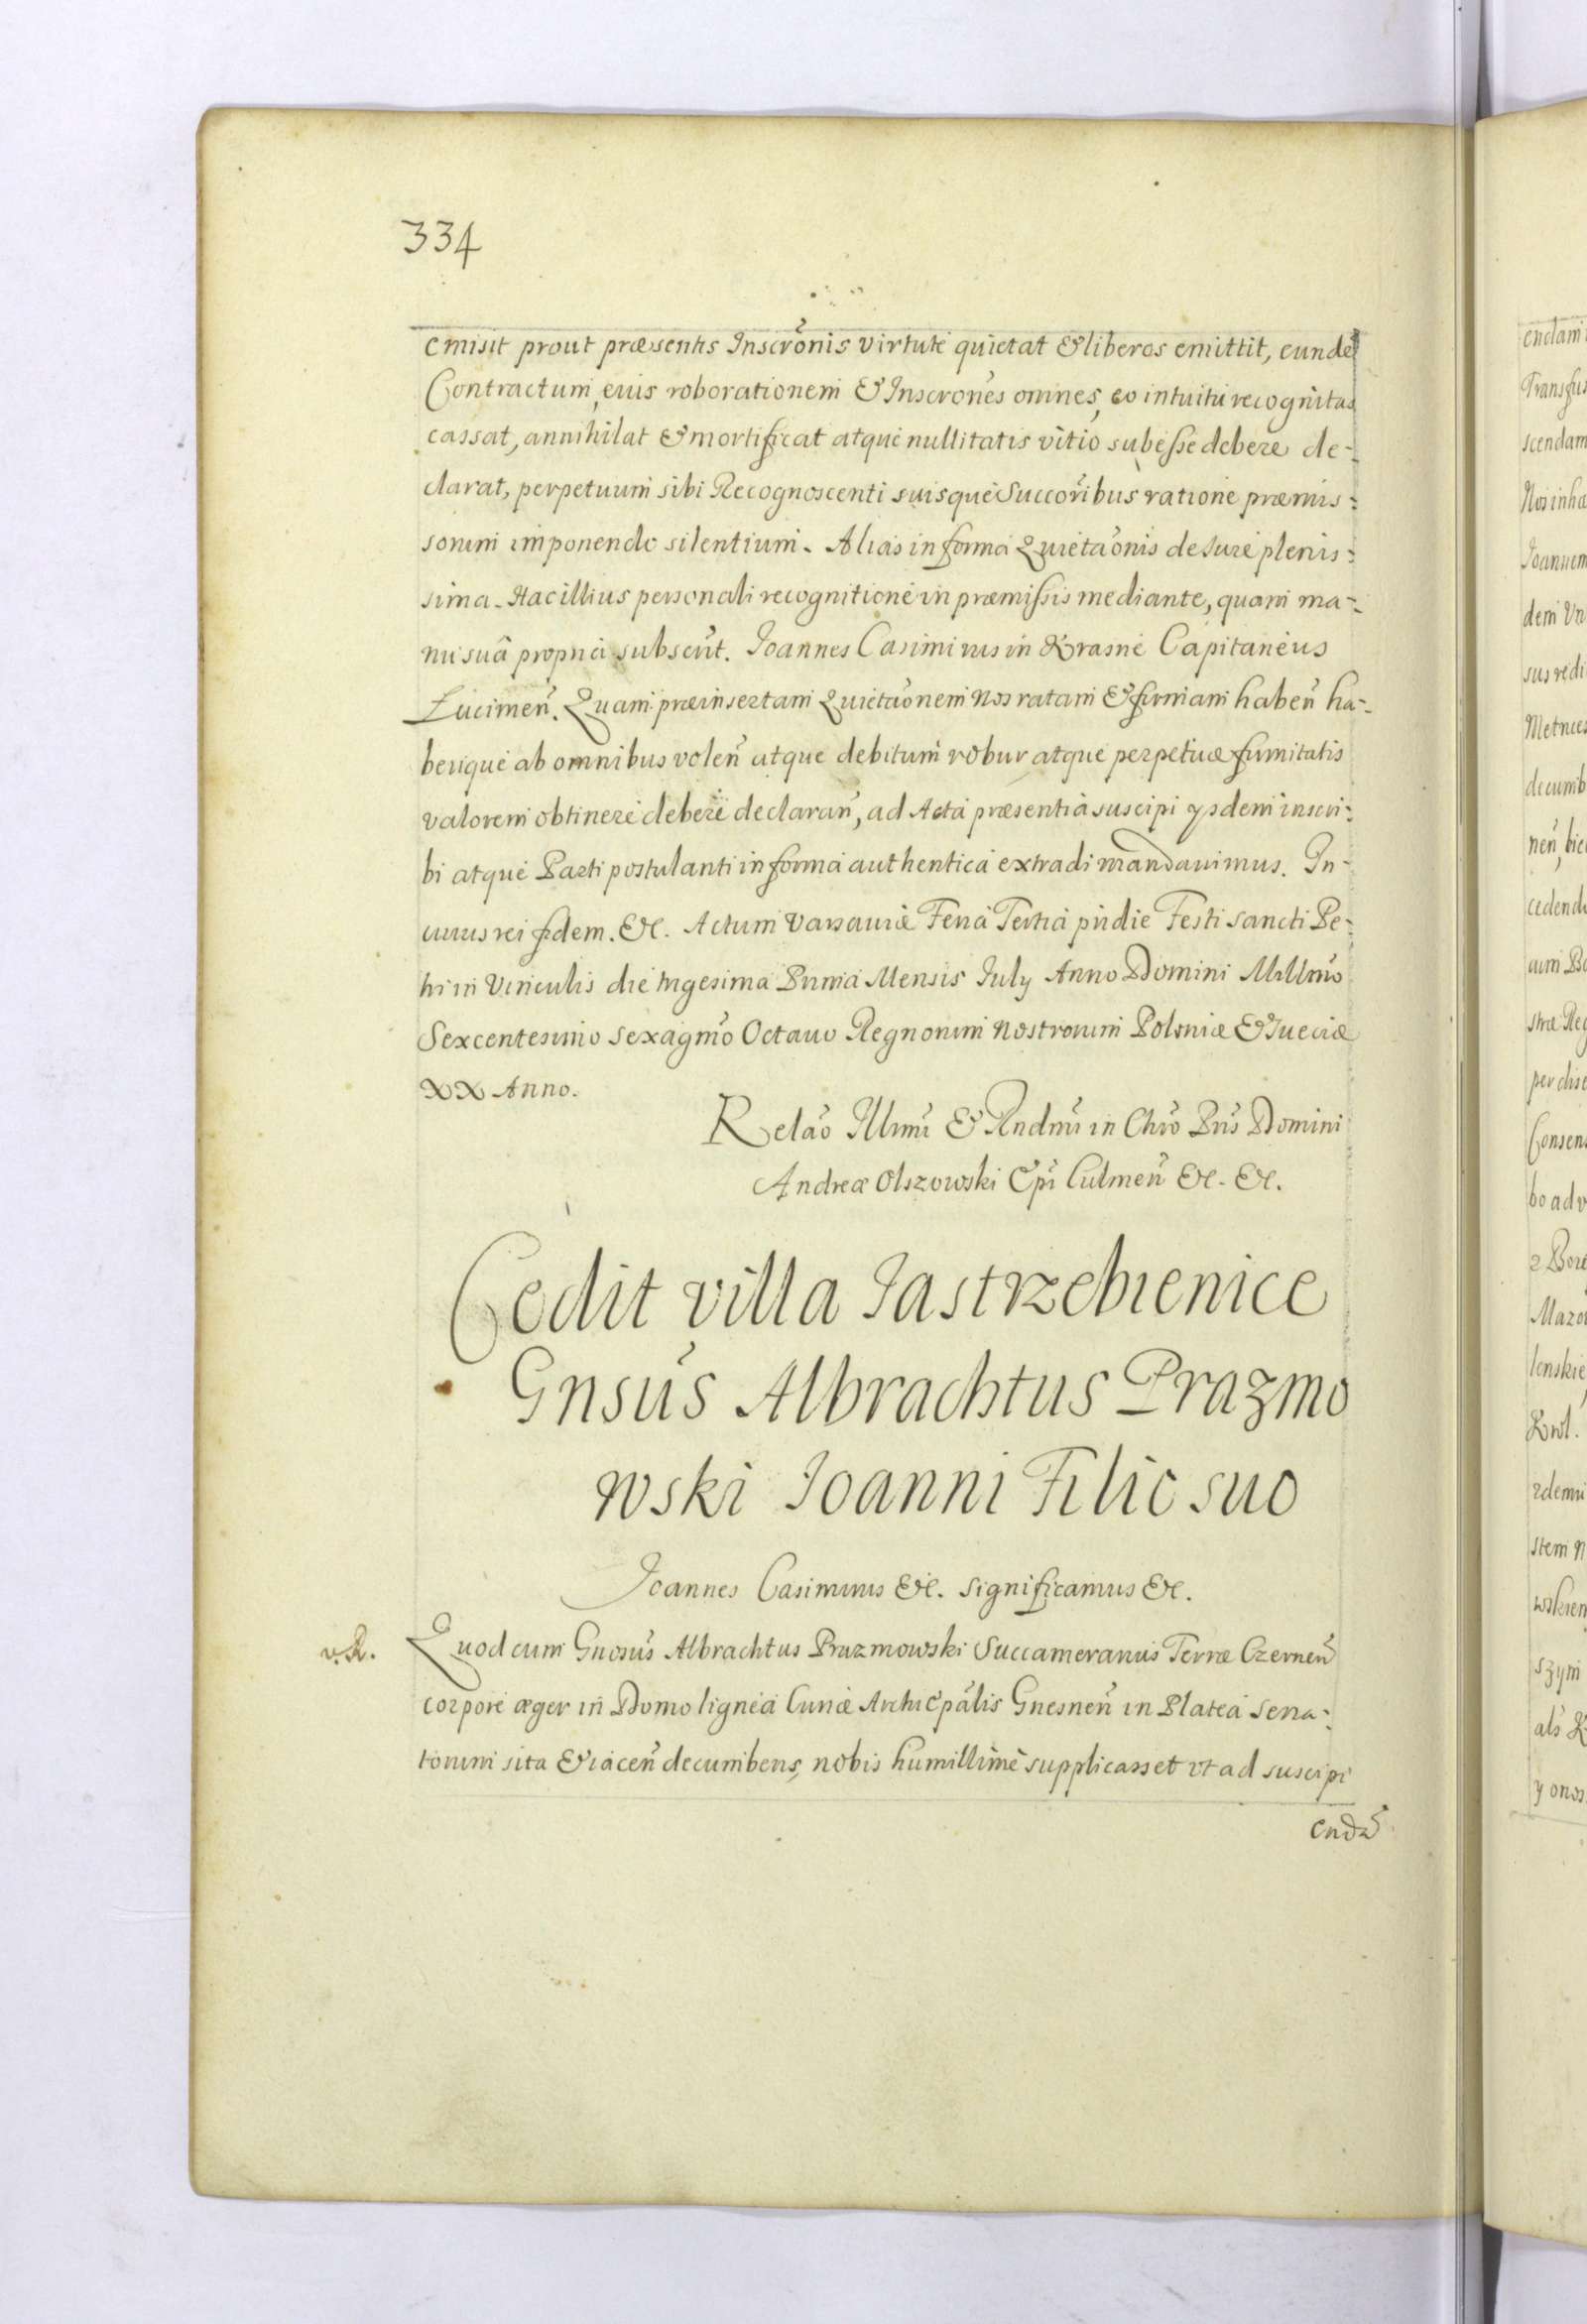 334
emisit prout præsentis Inscrõnis virtute quietat & liberos emittit, eundẽ
Contractum, eius roborationem & Inscrones omnes, eo intuitu recognitas
cassat, annihilat & mortificat atque nullitatis vitio subesse debere de-
clarat, perpetuum sibi Recognoscenti suisque Succoribus ratione præmis:
sorum imponendo silentium. Alias in forma Quietaõnis de Iure plenis:
sima. Hac illius personali recognitione in præmissis mediante, quam ma-
nu suâ propria subscrit. Joannes Casimirus in Krasne Capitaneus
Lucimeñ. Quam præinsertam Quietaõnem Nos ratam & firmam habeñ ha-
berique ab omnibus voleñ atque debitum robur atque perpetuæ firmitatis
valorem obtinere debere declarañ, ad Acta præsentia suscipi ysdem inscri:
bi atque Parti postulanti in forma authentica extradi mandavimus. In
cuius rei fidem. &c. Actum Varsaviæ Feria Tertia pridie Festi sancti Pe-
tri in Vinculis die trigesima Prima Mensis July Anno Domini Millmõ
Sexcentesimo sexagmõ Octavo Regnorum Nostrorum Poloniæ & Sueciæ
XX Anno.
Relaõ Illmi & Rndmi in Chrõ Pris Domini
Andreæ Olszowski Epi Culmeñ &c. &c.
Cedit villa Jastrzebienice
Gnsus Albrachtus Prazmo
wski Joanni Filio suo
Joannes Casimirus &c. significamus &c.
v. R.
Quod cum Gnosus Albrachtus Prazmowski Succamerarius Terræ Czerneñ
corpore æger in Domo lignea Curiæ Archiepalis Gnesneñ in Platea Sena:
torum sita & iaceñ decumbens, nobis humillime supplicasset vt ad suscipi
endã
endam
Transfus
scendam
Nos in hæ
Joannem
dem Vn
sus redi
Metrices
decumb
neñ, hic
cedend
um Bo
stræ Reg
per disc
Consen
bo ad v
z Borz
Mazo
lenskie
Krol.
zdemu
stem N
wskiem
szym
als K
y onos